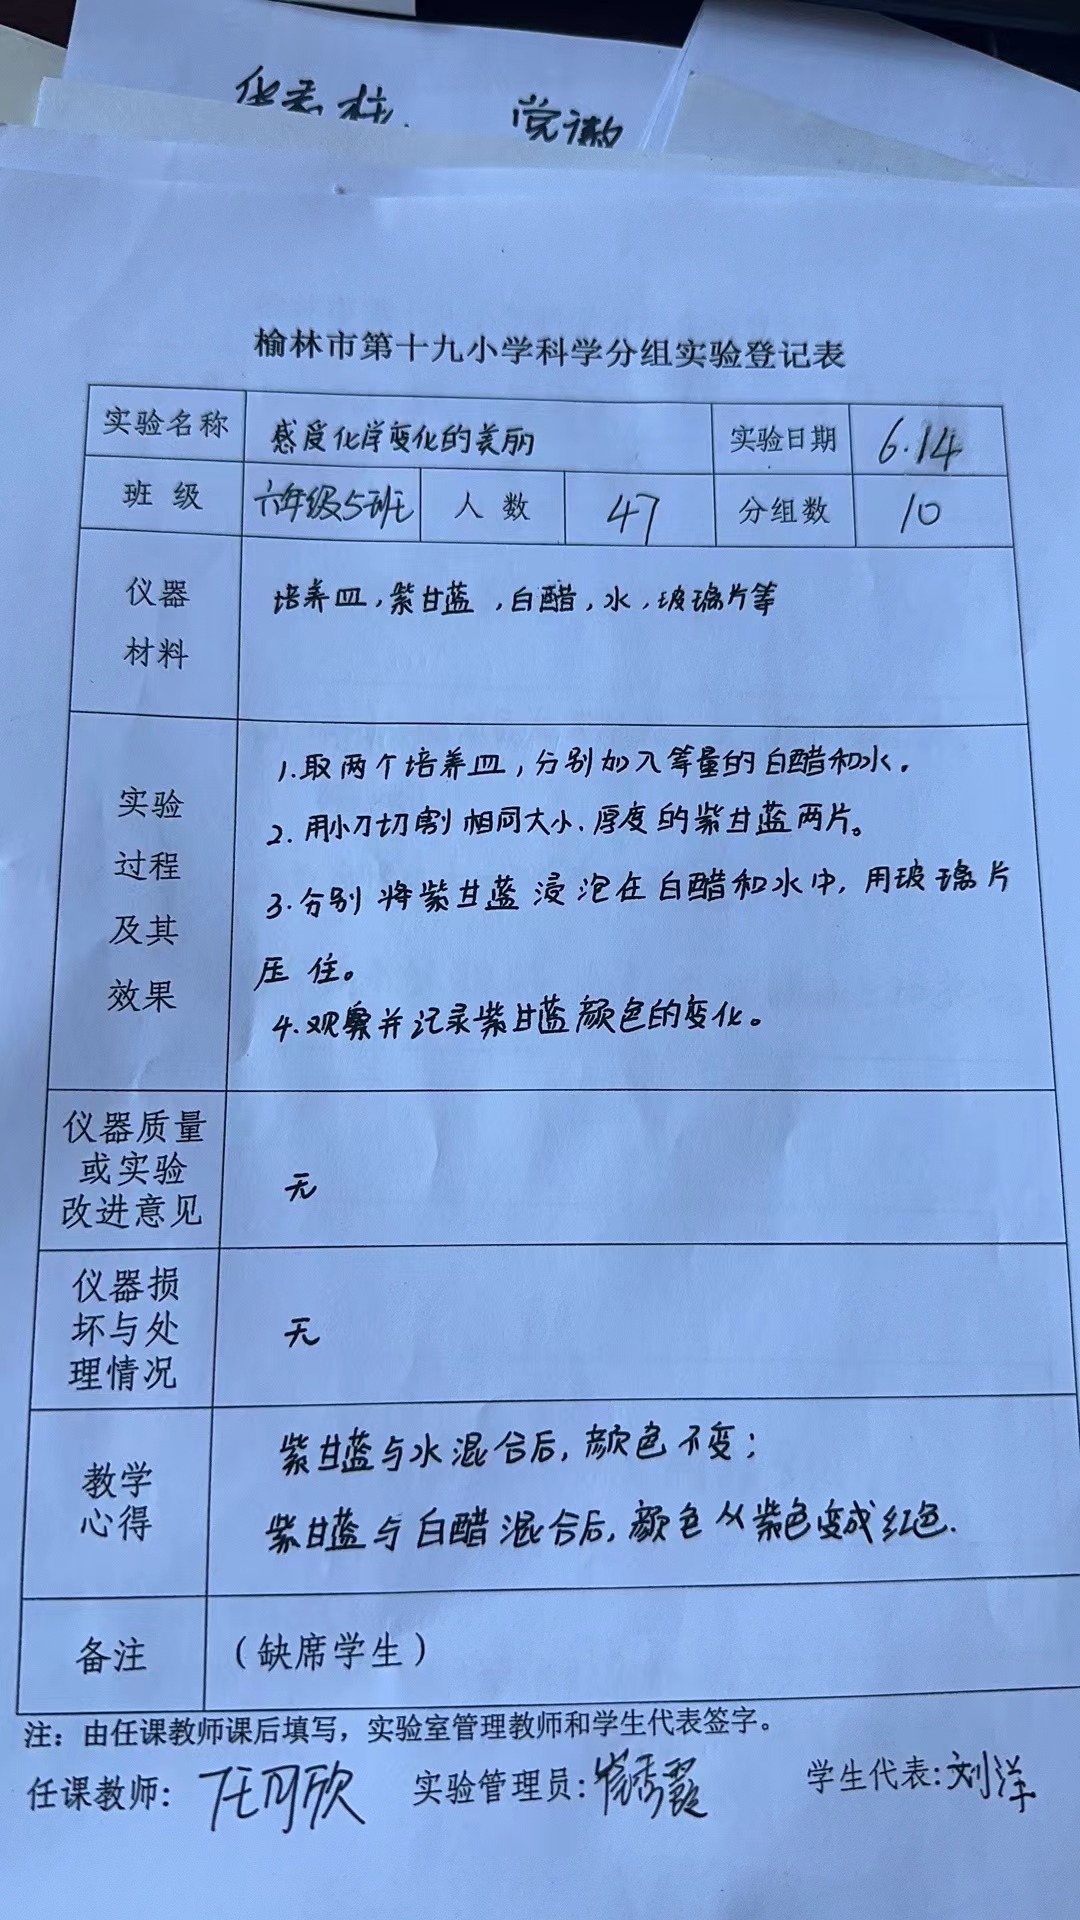 党
榆林市第十九小学科学分组实验登记表
实验名称 感受化学变化的美丽 实验日期 6.14
班 级 六年级5班 人 数 47 分组数 10
仪器
材料
培养皿,紫甘蓝,白醋,水,玻璃片等
实验
过程
及其
效果
1.取两个培养皿,分别加入等量的白醋和水。
2.用小刀切割相同大小、厚度的紫甘蓝两片。
3.分别将紫甘蓝浸泡在白醋和水中,用玻璃片
压住。
4.观察并记录紫甘蓝颜色的变化。
仪器质量
或实验
改进意见
无
仪器损
坏与处
理情况
无
教学
心得
紫甘蓝与水混合后,颜色不变;
紫甘蓝与白醋混合后,颜色从紫色变成红色.
备注 (缺席学生)
注:由任课教师课后填写,实验室管理教师和学生代表签字。
任课教师:任可欣 实验管理员: 秀霞 学生代表:刘洋